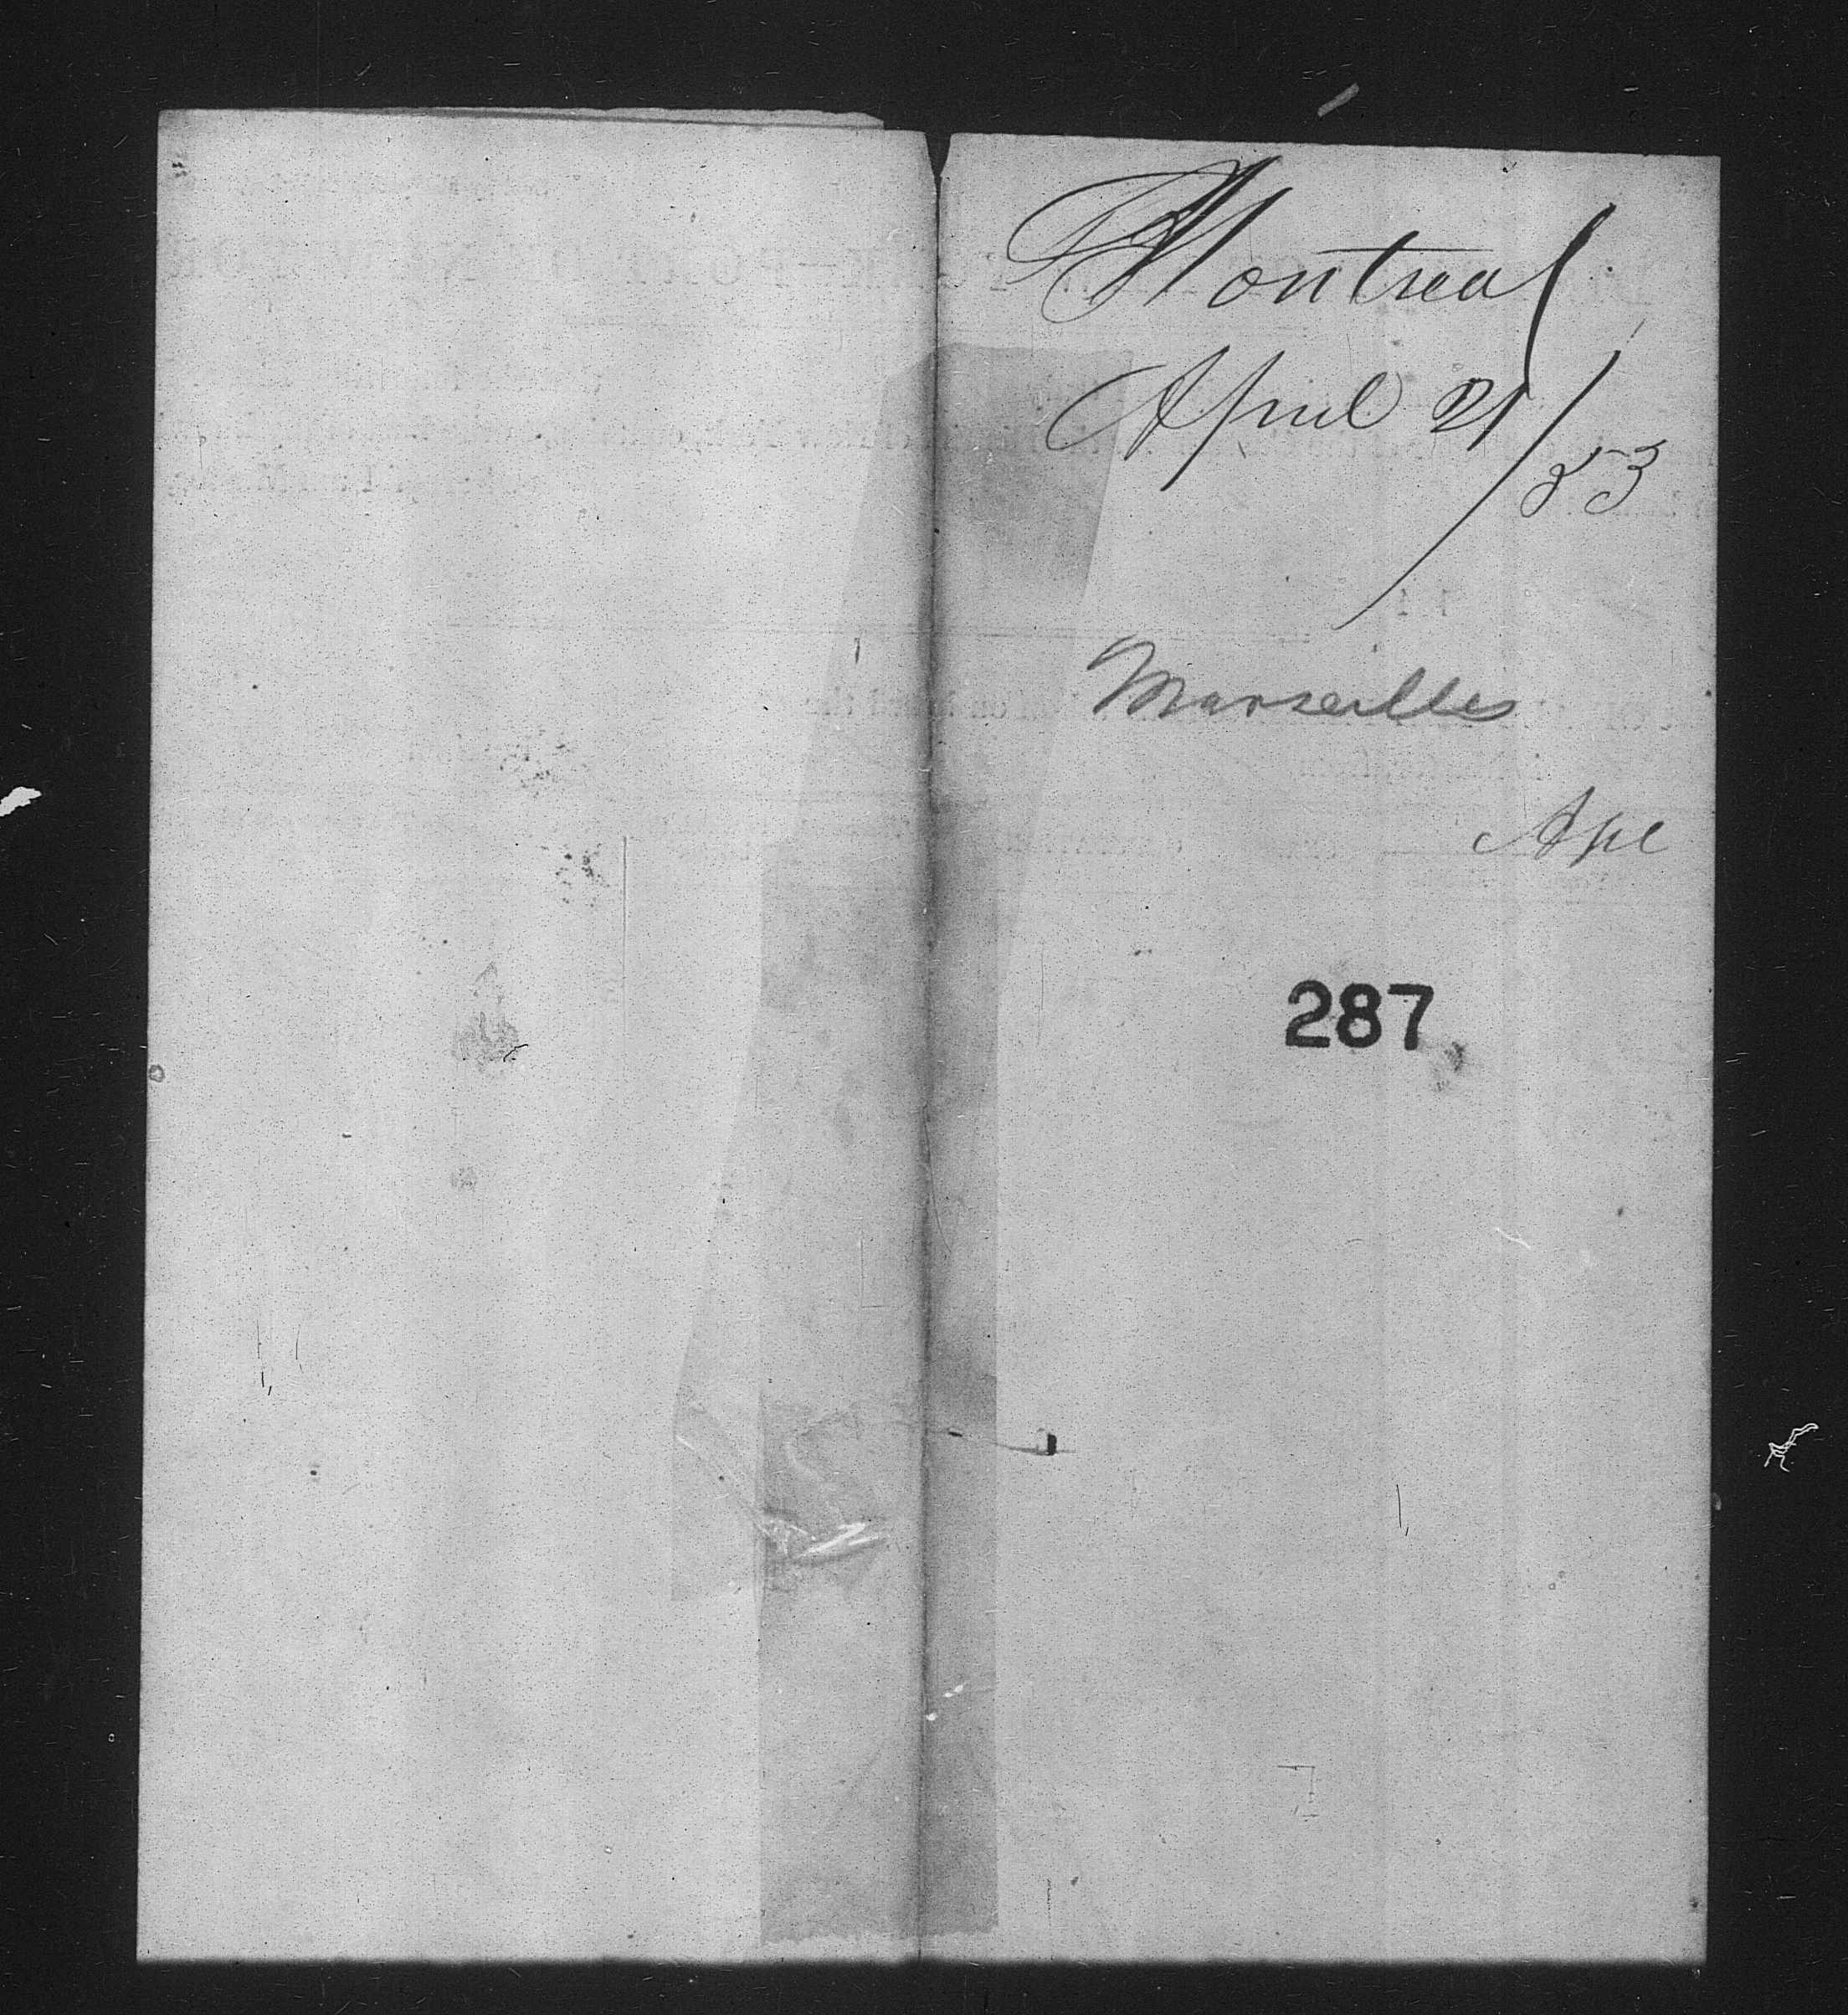 Montreal
April 21/53
Marseilles
287